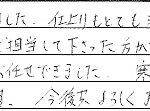 ました。仕上りもとても
担当して下さった方が
お任せできました。寒
今後共よろしくお